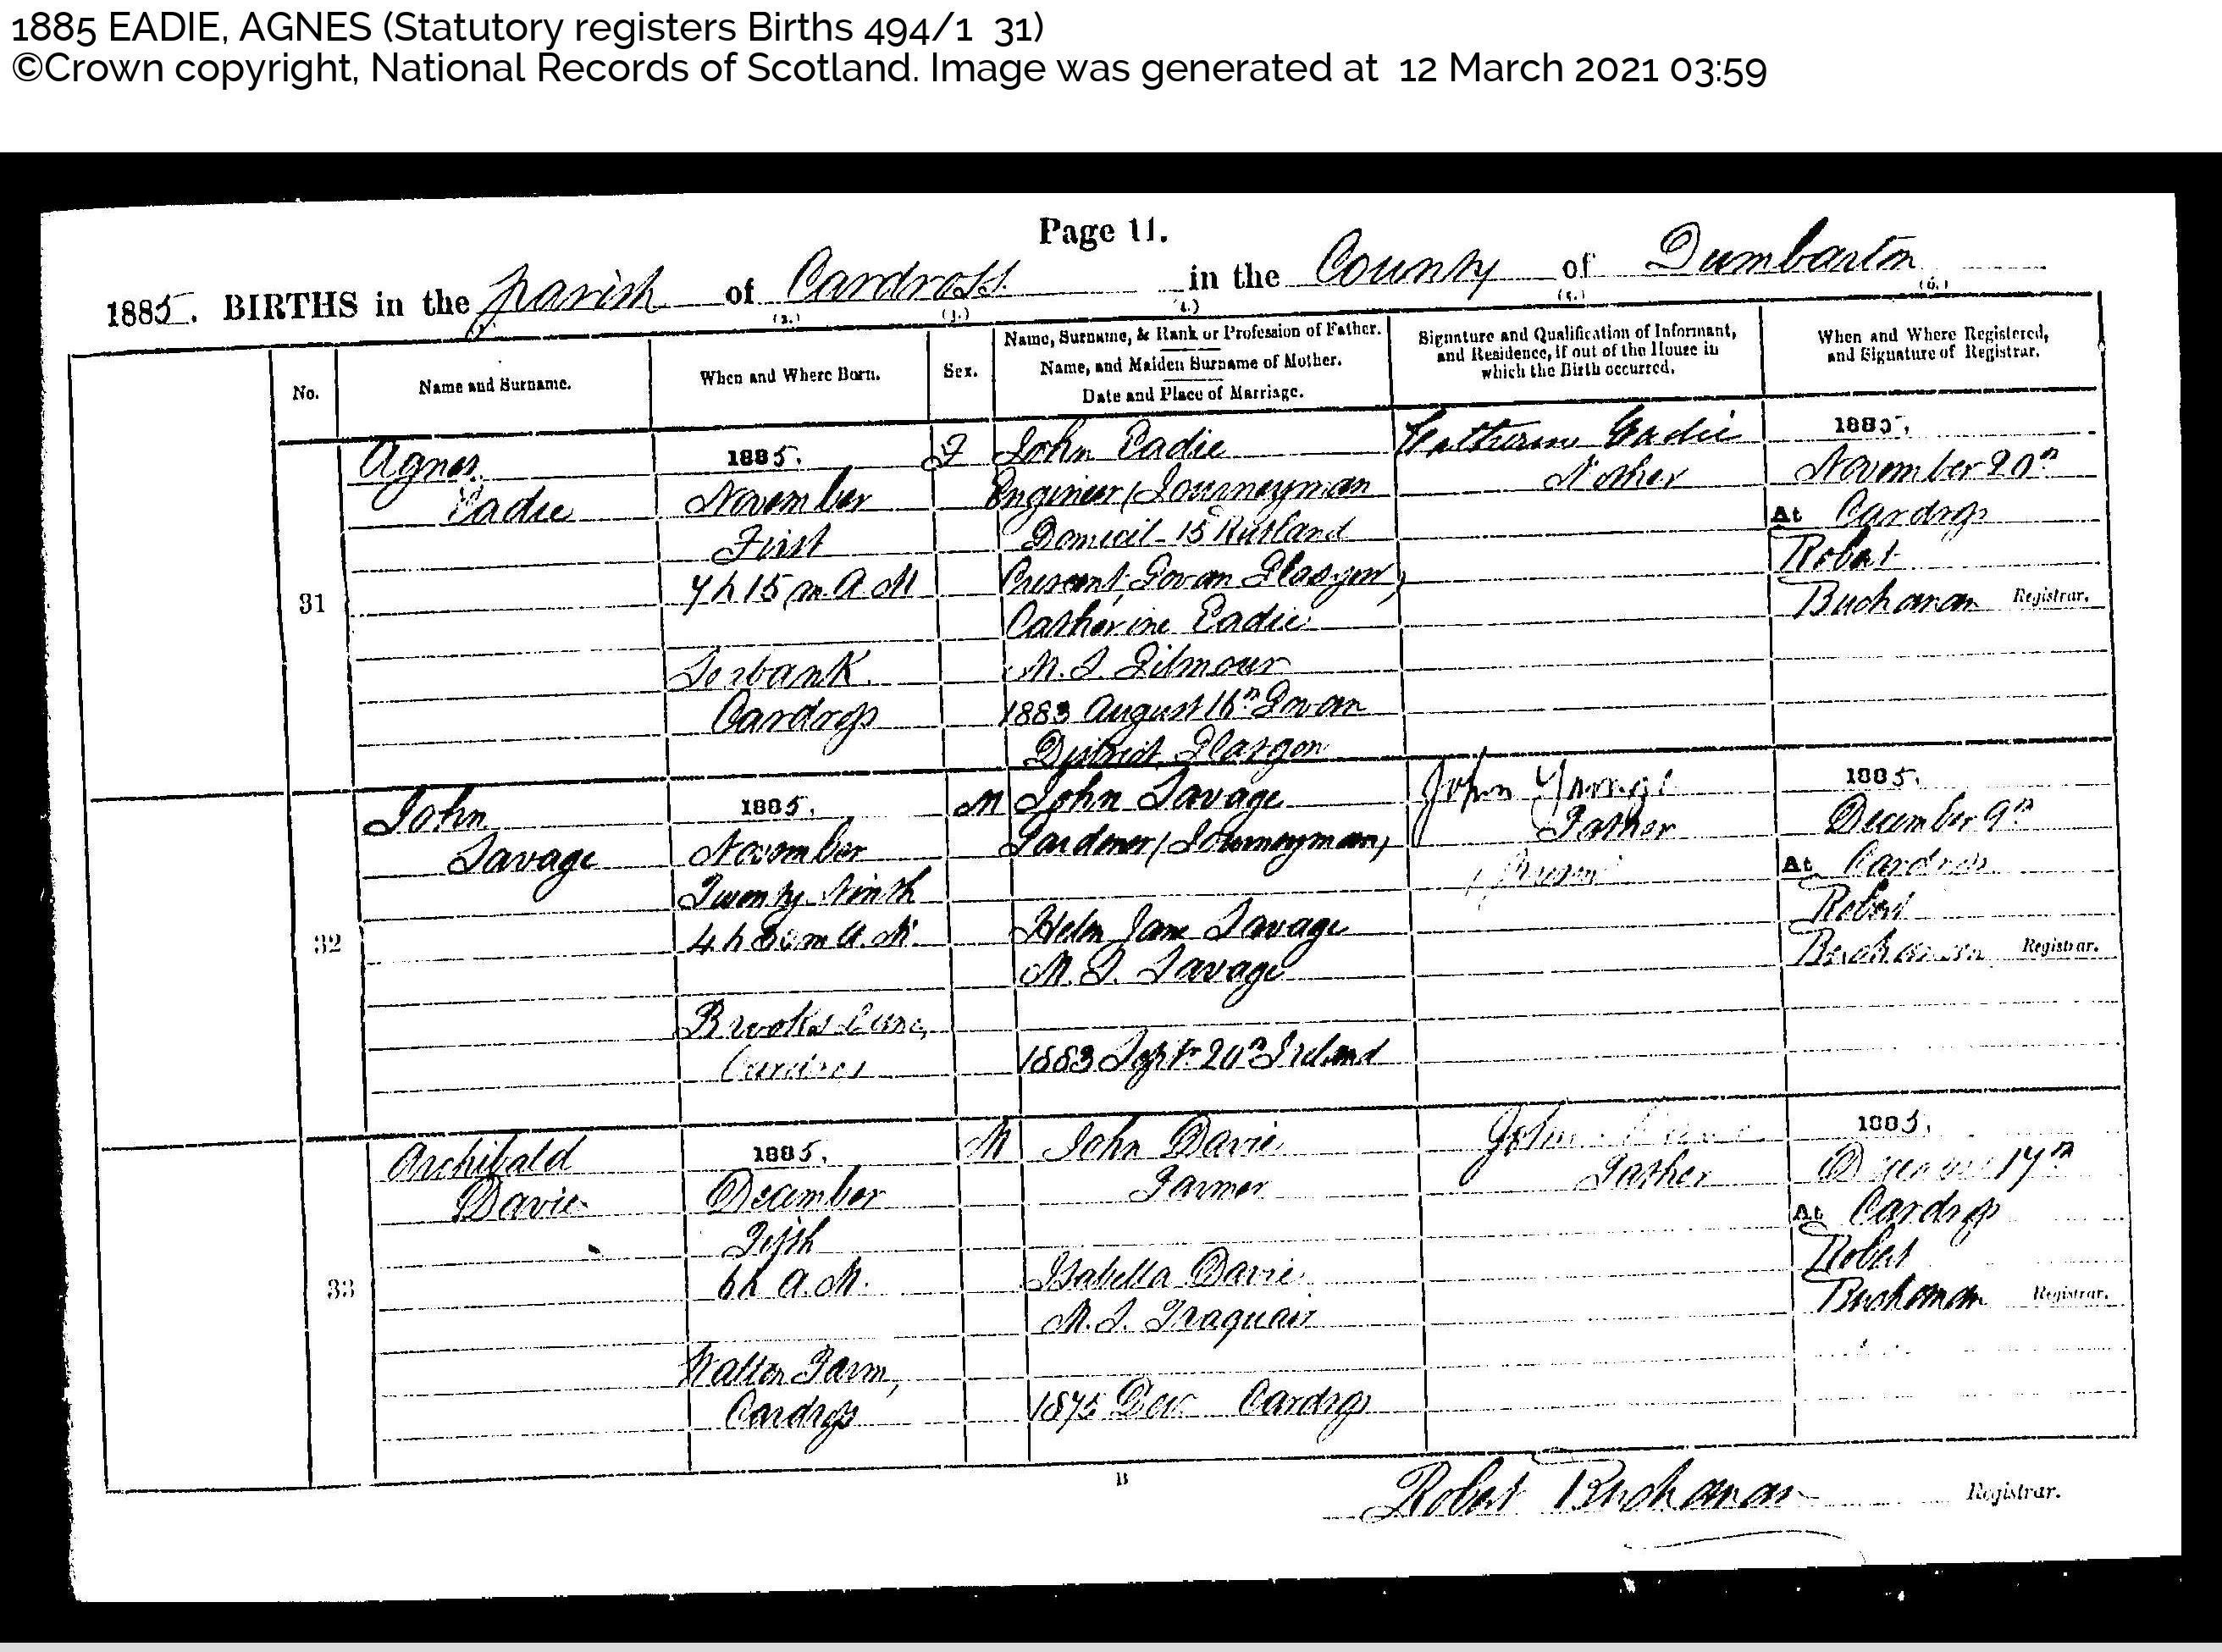 1885 EADIE, AGNES (Statutory registers Births 494/1 31)
©Crown copyright, National Records of Scotland. Image was generated at 12 March 2021 03:59
Page 11.
1885. BIRTHS in the parish of Cardross in the County of Dumbarton
(2.) (3.) (4.) (5.) (6.)
No.
Name and Surname.
When and Where Born.
Sex.
Name, Surname, & Rank or Profession of Father.
Name, and Maiden Surname of Mother.
Date and Place of Marriage.
Signature and Qualification of Informant,
and Residence, if out of the House in
which the Birth occurred.
When and Where Registered,
and Signature of Registrar.
31
Agnes
Eadie
1885.
November
First
7 h 15 m A M
Cardross
F
John Eadie
Engineer (Journeyman
Domicil - 15 Rutland
Crescent, Govan Glasgow)
Catherine Eadie
M. S. Gilmour
1883 August 16th Govan
District, Glasgow
Catherine Eadie
Mother
1885.
November 20th
At Cardross
Robert
Buchanan Registrar.
32
John
Savage
1885.
November
Twenty Ninth
4 h m A. M.
Cardross
M
John Savage
Gardener (Journeyman)
Helen Jane Savage
M. S. Savage
1883 Septr 20th Ireland
John
Father
(Present)
1885.
December 9th
At Cardross
Robert
Buchanan Registrar.
33
Archibald
Davie
1885.
December
Fifth
6 h A. M.
Walton Farm,
Cardross
M
John Davie
Farmer
Isabella Davie
M. S. Traquair
1875 Decr Cardross
John Davie
Father
1885.
December 17th
At Cardross
Robert
Buchanan Registrar.
B
Robert Buchanan Registrar.